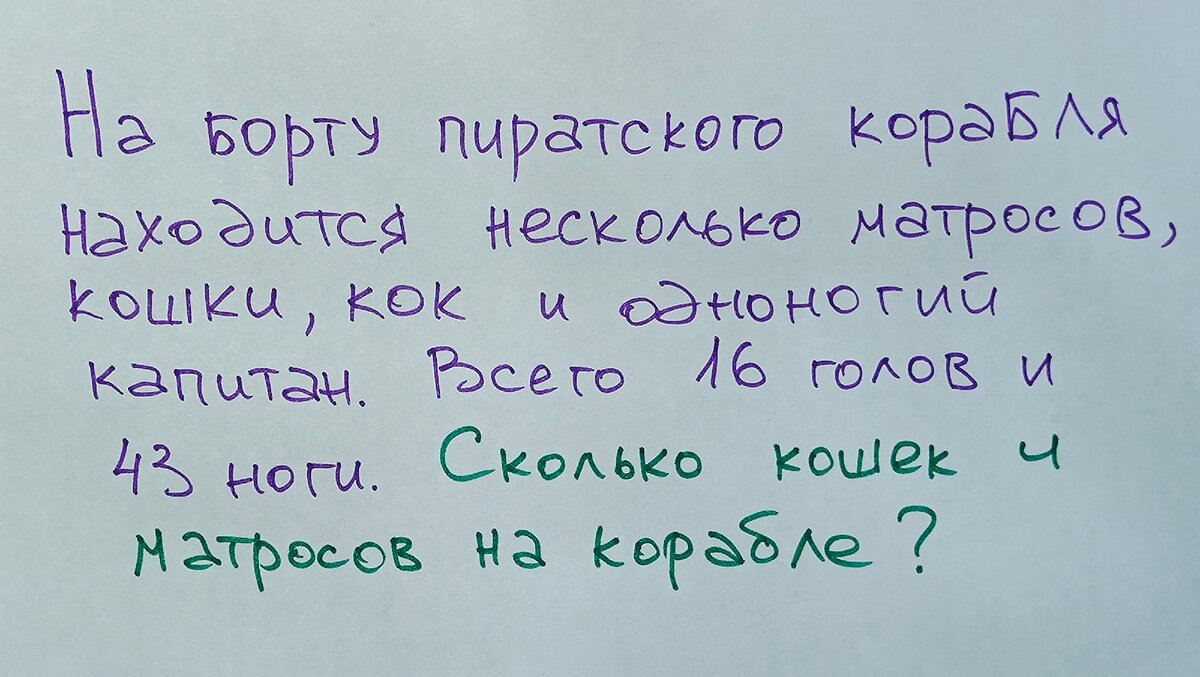 На борту пиратского корабля
находится несколько матросов,
кошки, кок и одноногий
капитан. Всего 16 голов и
43 ноги. Сколько кошек и
матросов на корабле?